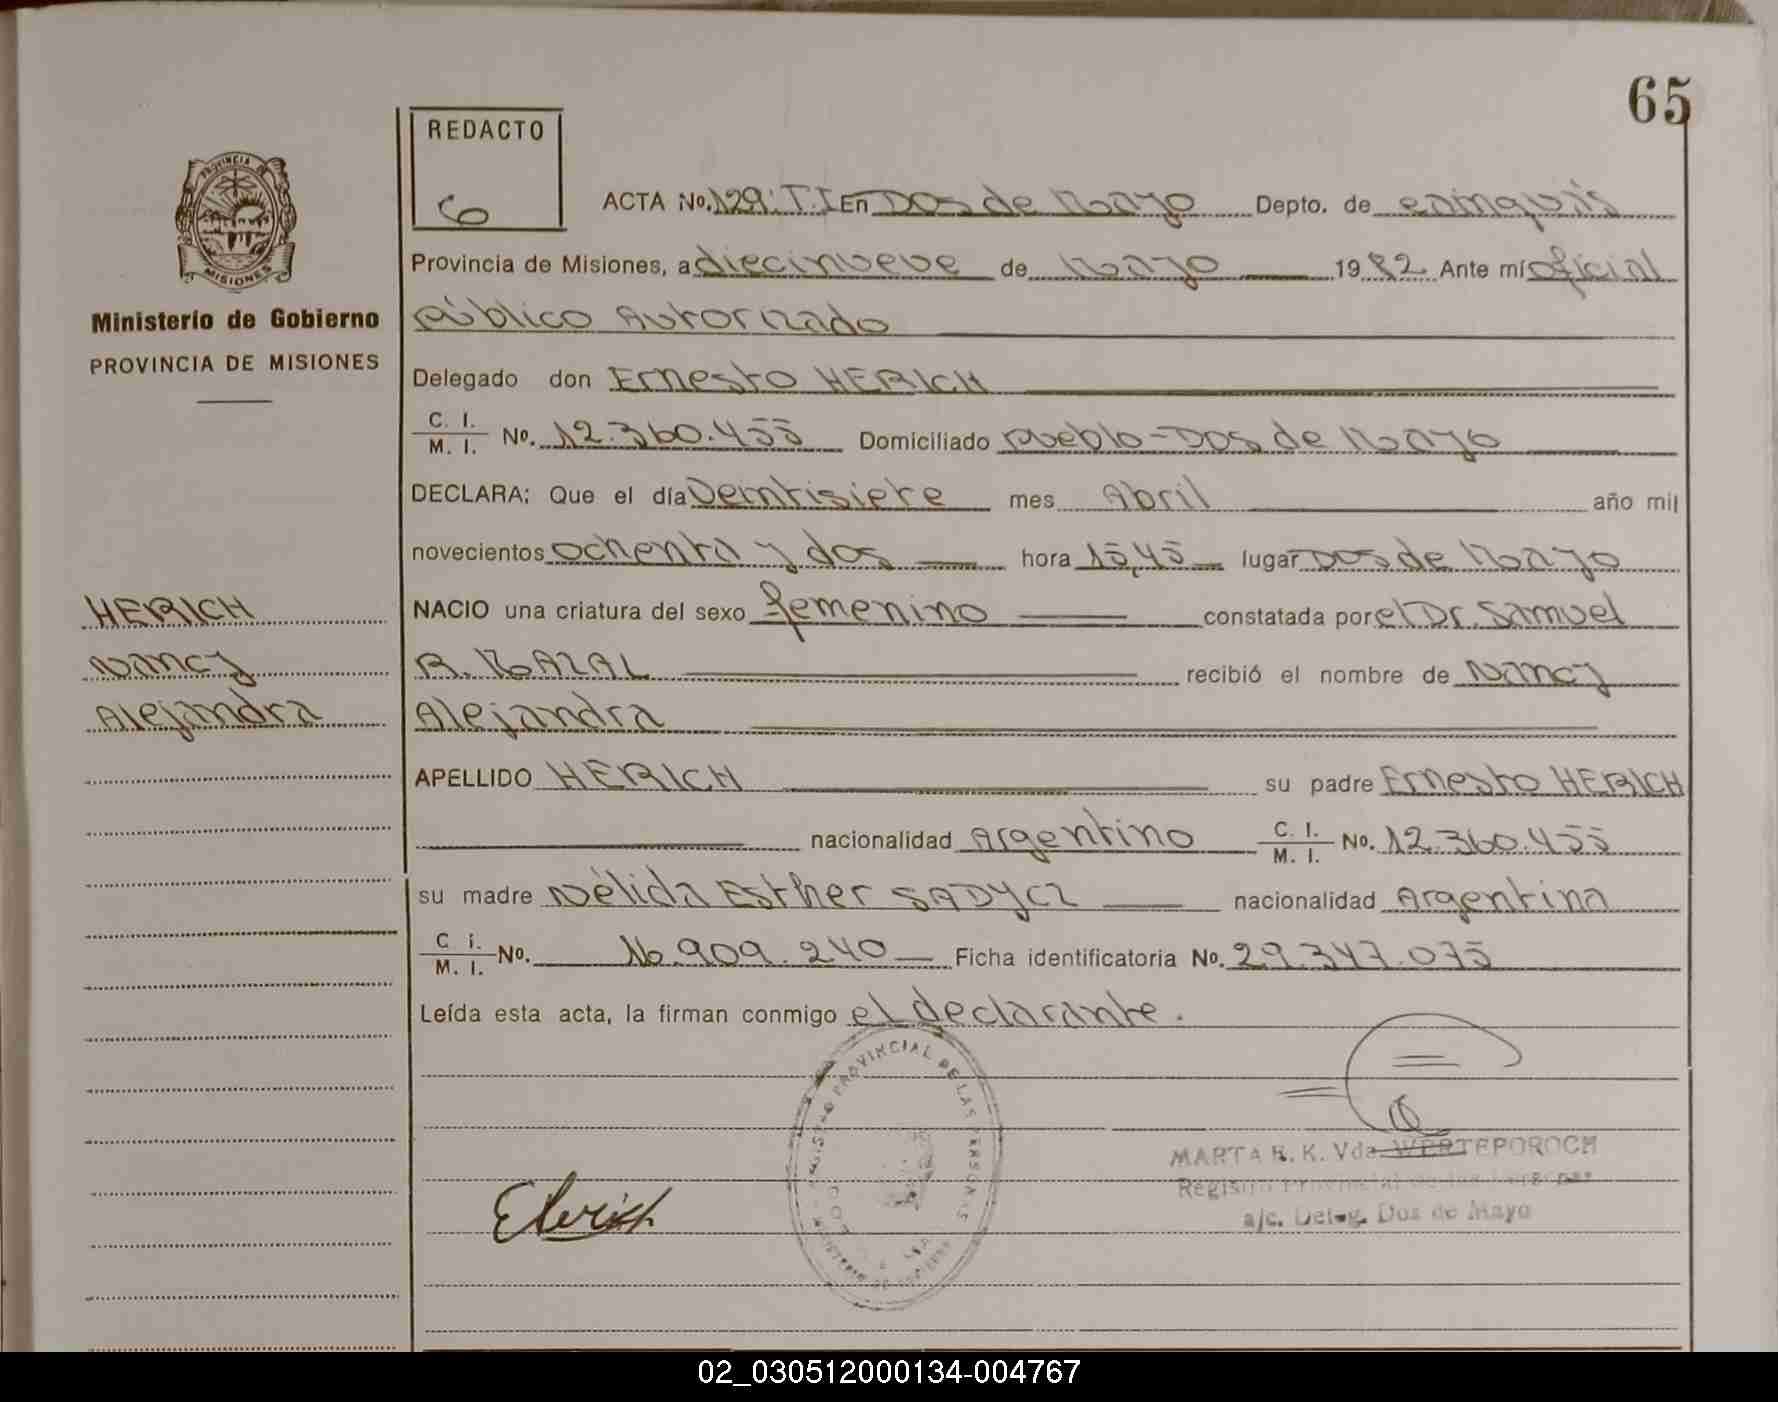 65
REDACTO
ACTA No. 129. T. I En Dos de Mayo Depto. de Cainguás
Provincia de Misiones, a diecinueve de Mayo 1982 Ante mí oficial
Público Autorizado
Delegado don Ernesto HERICH
C. I.
M. I. No. 12.360.455 Domiciliado Pueblo-Dos de Mayo
DECLARA: Que el día Veintisiete mes Abril año mil
novecientos ochenta y dos hora 15,45 lugar Dos de Mayo
NACIO una criatura del sexo femenino constatada por el Dr. Samuel
R. MAZAL recibió el nombre de Nancy
Alejandra
APELLIDO HERICH su padre Ernesto HERICH
nacionalidad Argentino C. I.
M. I. No. 12.360.455
su madre Nélida Esther SADYCZ nacionalidad Argentina
C. i.
M. I. No. 16.909.240 Ficha identificatoria No. 29.347.075
Leída esta acta, la firman conmigo el declarante.
PROVINCIA
MISIONES
Ministerio de Gobierno
PROVINCIA DE MISIONES
HERICH
Nancy
Alejandra
PROVINCIAL DE LAS PERSONAS
EHerich
MARTA R. K. Vda. WERTEPOROCH
Registro Provincial de las Personas
a/c. Deleg. Dos de Mayo
02_030512000134-004767